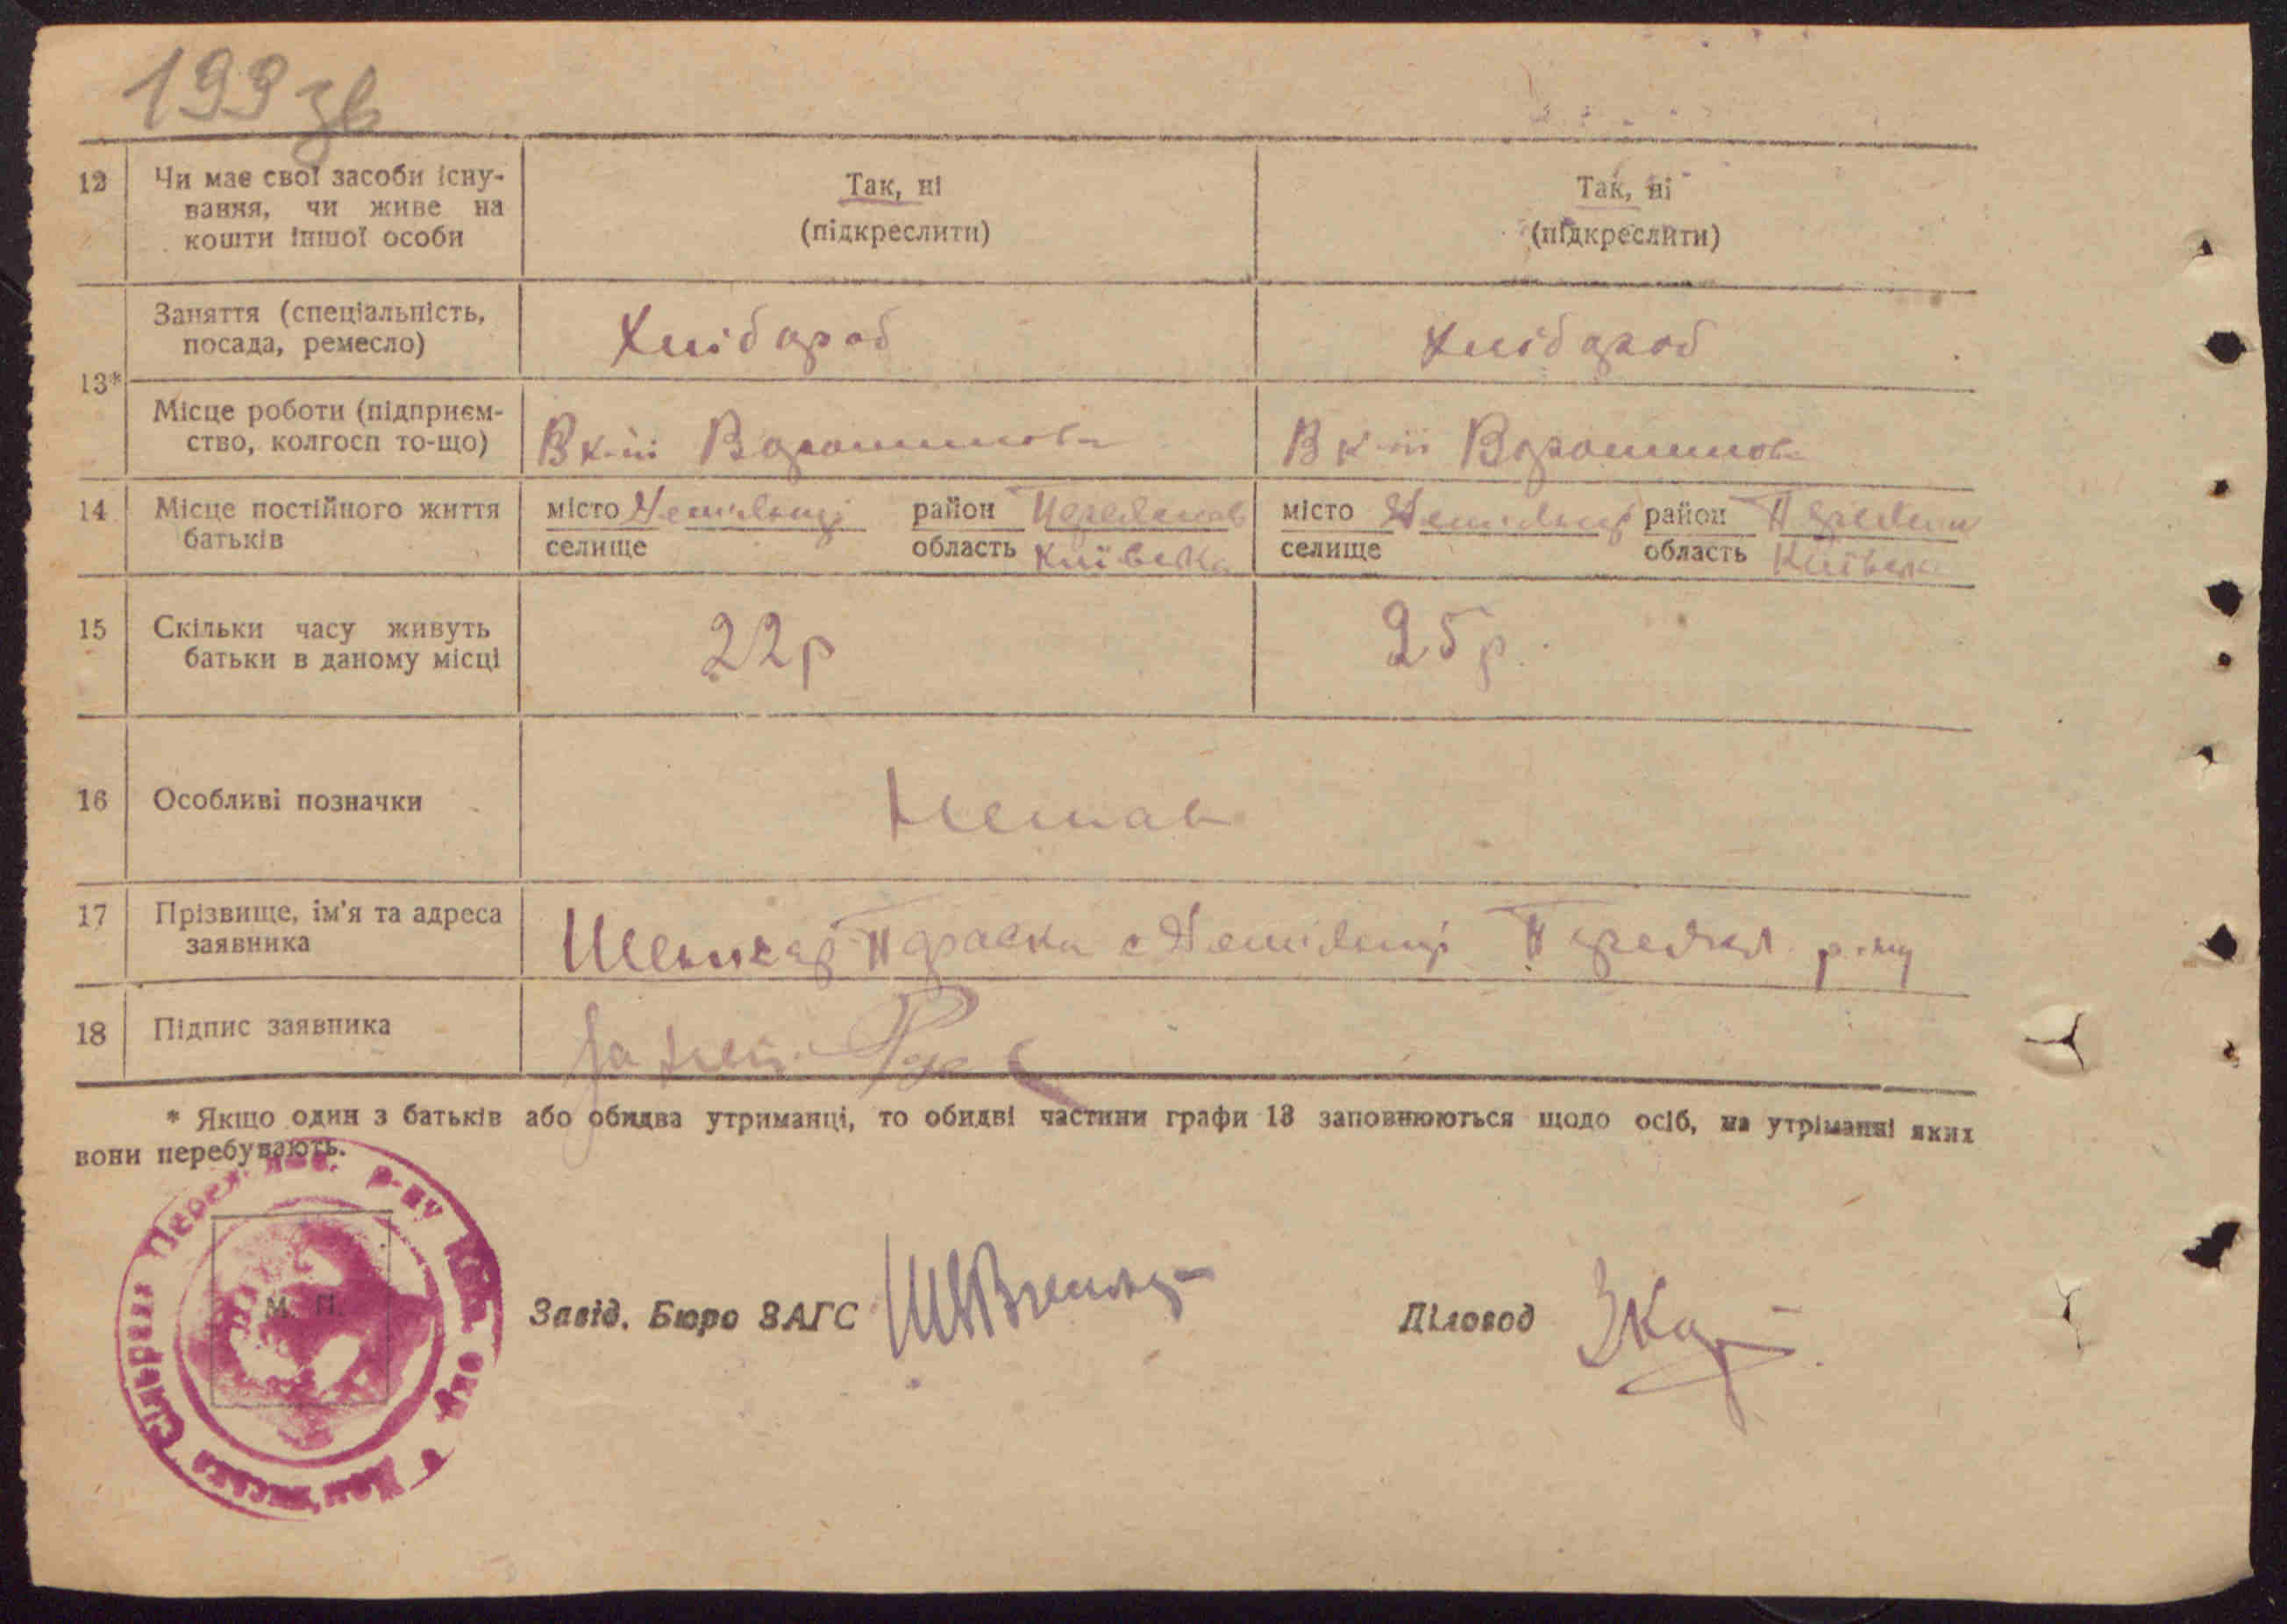 199 зв
12 Чи має свої засоби існу-
вання, чи живе на
кошти іншої особи
Так, ні
(підкреслити)
Так, ні
(підкреслити)
13*
Заняття (спеціальність,
посада, ремесло)
Хлібороб
Хлібороб
Місце роботи (підприєм-
ство, колгосп то-що)
В к-пі Ворошилова
В к-пі Ворошилова
14 Місце постійного життя
батьків
місто район
селище область Київська
місто район
селище область Київська
15 Скільки часу живуть
батьки в даному місці
22р
25р.
16 Особливі позначки
Немає
17 Прізвище, ім'я та адреса
заявника
Параска с р-ну
18 Підпис заявника
За
* Якщо один з батьків або обидва утриманці, то обидві частини графи 13 заповнюються щодо осіб, на утріманні яких
вони перебувають.
р-ну
М. П.
Завід. Бюро ЗАГС
Діловод